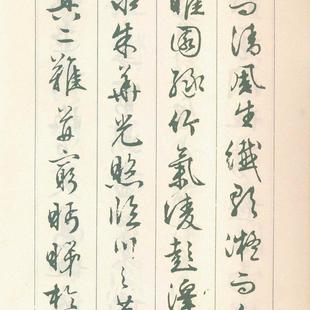 而清風生纖歌凝而
睢園綠竹氣凌彭澤
水朱華光照臨川之
具二難並窮眄睇於